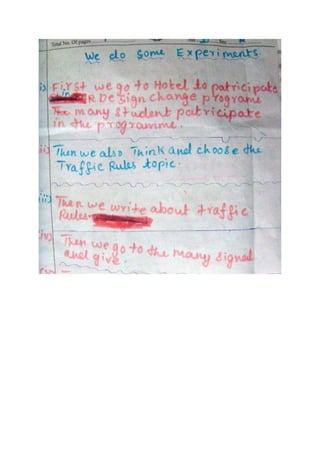 Total No. Of pages
We do some Experiments.
i) First we go to Hotel to patricipate
in R Design change programe
The many student patricipate
in the programme.
ii) Then we also Think and choose the
Traffic Rules topic.
iii) Then we write about traffic
Rules.
iv) Then we go to the many signal
and give.